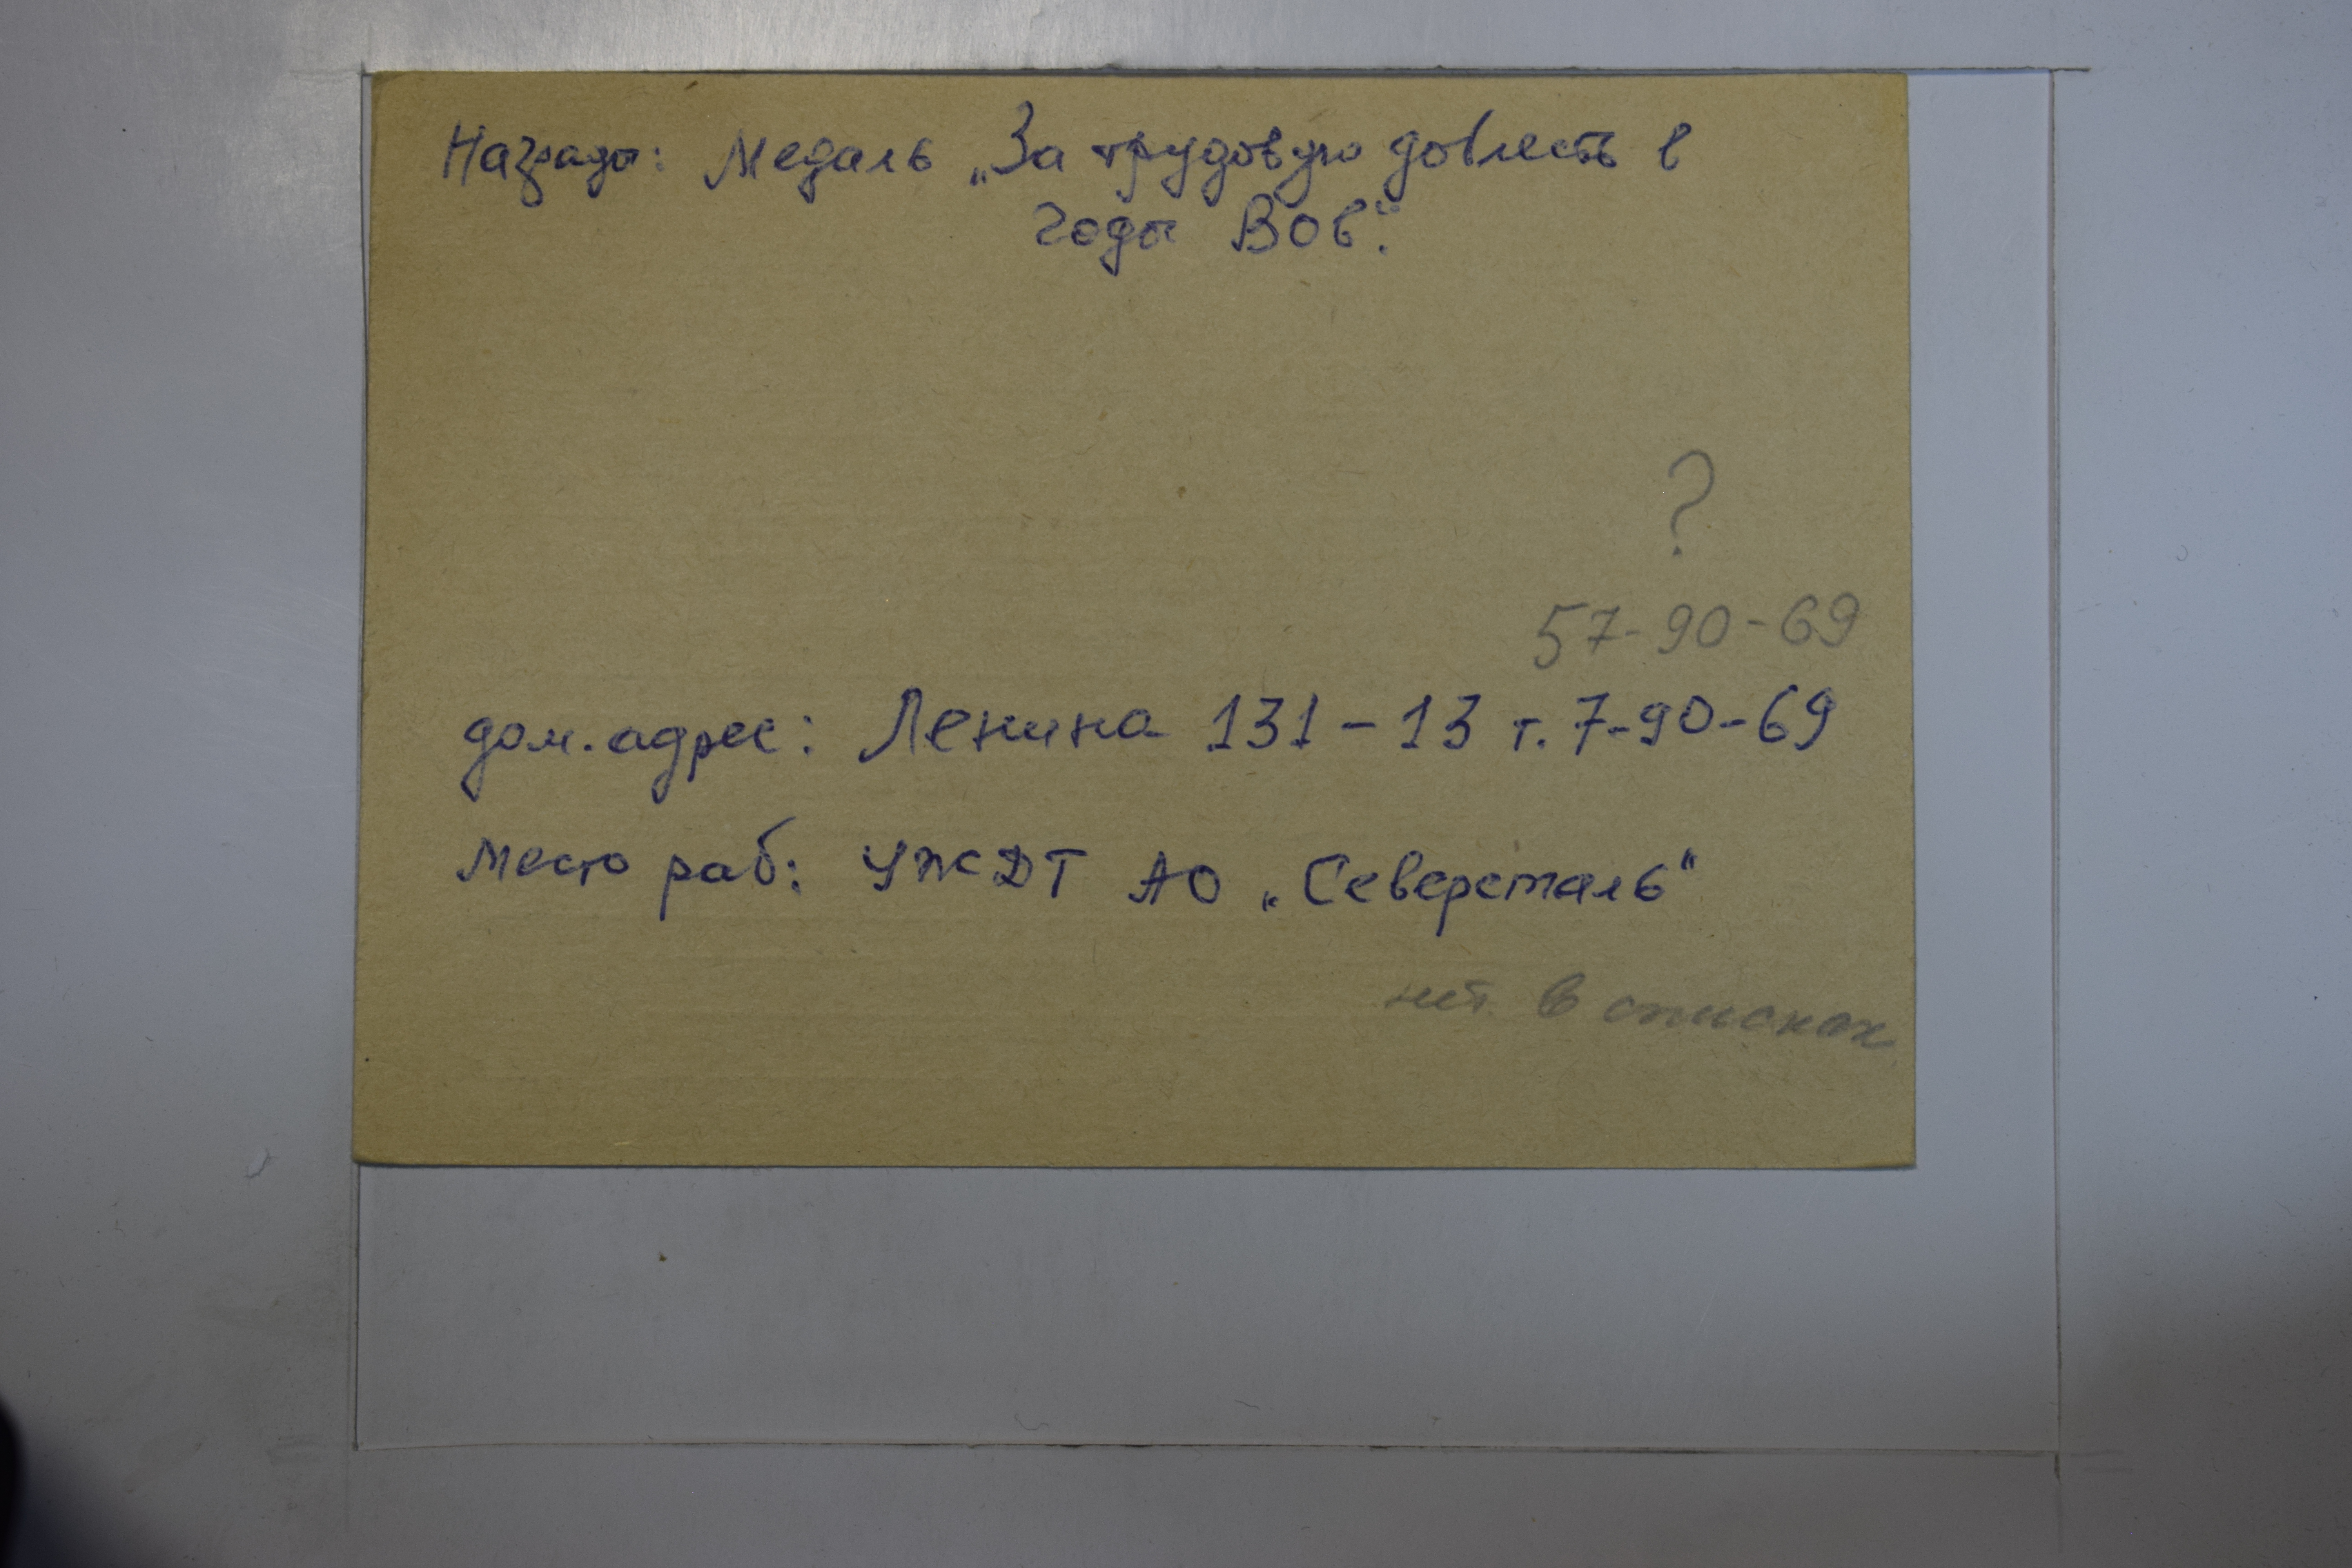 Награды: Медаль „За трудовую доблесть в
годы ВОв".
?
57-90-69
дом. адрес: Ленина 131-13 т. 7-90-69
Место раб: УЖДТ АО „Северсталь"
нет в списках